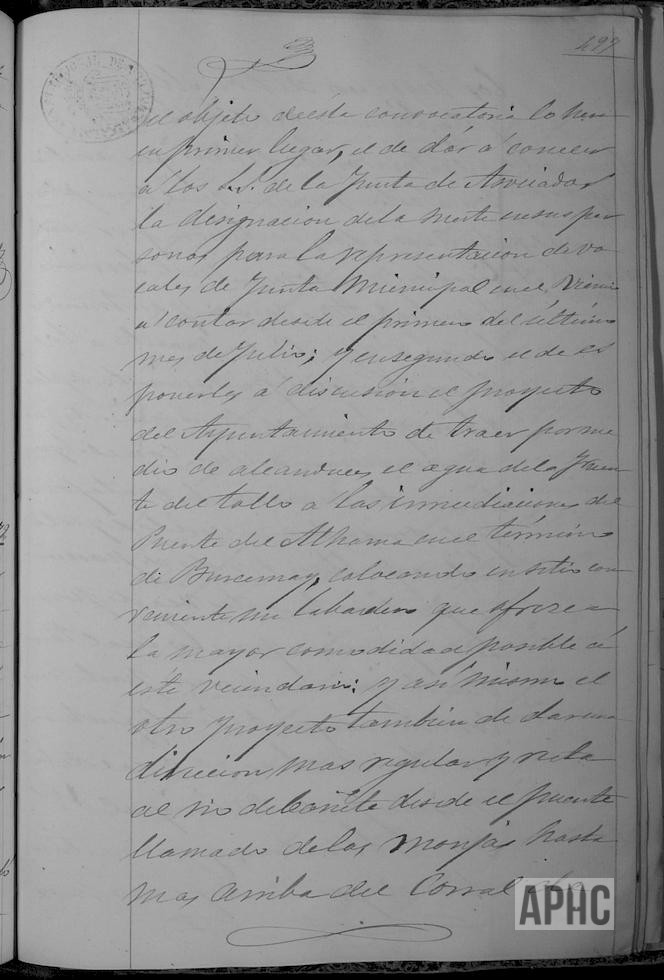 499
el objeto de esta convocatoria lo hera
en primer lugar, el de dar á conocer
á los S.S. de la Junta de Asociados
la designacion de la suerte en sus per
sonas para la representacion de vo
cales de Junta Municipal en el
á contar desde el primero del último
mes de Julio; y en segundo el de es
ponerles á discusion el proyecto
del Ayuntamiento de traer por me
dio de alcanduces el agua de la Fuen
te del tallo á las inmediaciones del
Puente del Alhama en el término
de colocando en sitio con
veniente un labadero que ofrezca
la mayor comodidad posible á
este vecindario; y así mismo el
otro proyecto tambien de dar una
direccion mas regular y recta
al rio de Cañete desde el puente
llamado de las Monjas hasta
mas arriba del Corral
APHC